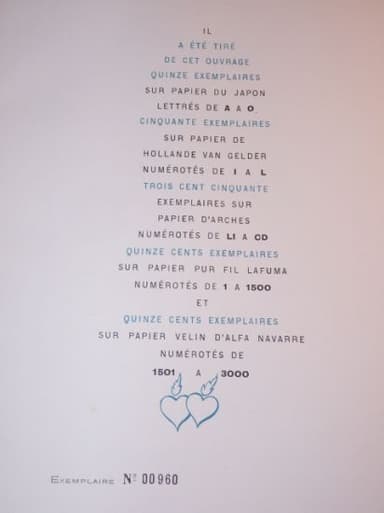 IL
A ÉTÉ TIRÉ
DE CET OUVRAGE
QUINZE EXEMPLAIRES
SUR PAPIER DU JAPON
LETTRÉS DE A A O
CINQUANTE EXEMPLAIRES
SUR PAPIER DE
HOLLANDE VAN GELDER
NUMÉROTÉS DE I A L
TROIS CENT CINQUANTE
EXEMPLAIRES SUR
PAPIER D'ARCHES
NUMÉROTÉS DE LI A CD
QUINZE CENTS EXEMPLAIRES
SUR PAPIER PUR FIL LAFUMA
NUMÉROTÉS DE 1 A 1500
ET
QUINZE CENTS EXEMPLAIRES
SUR PAPIER VELIN D'ALFA NAVARRE
NUMÉROTÉS DE
1501 A 3000
EXEMPLAIRE Nº 00960